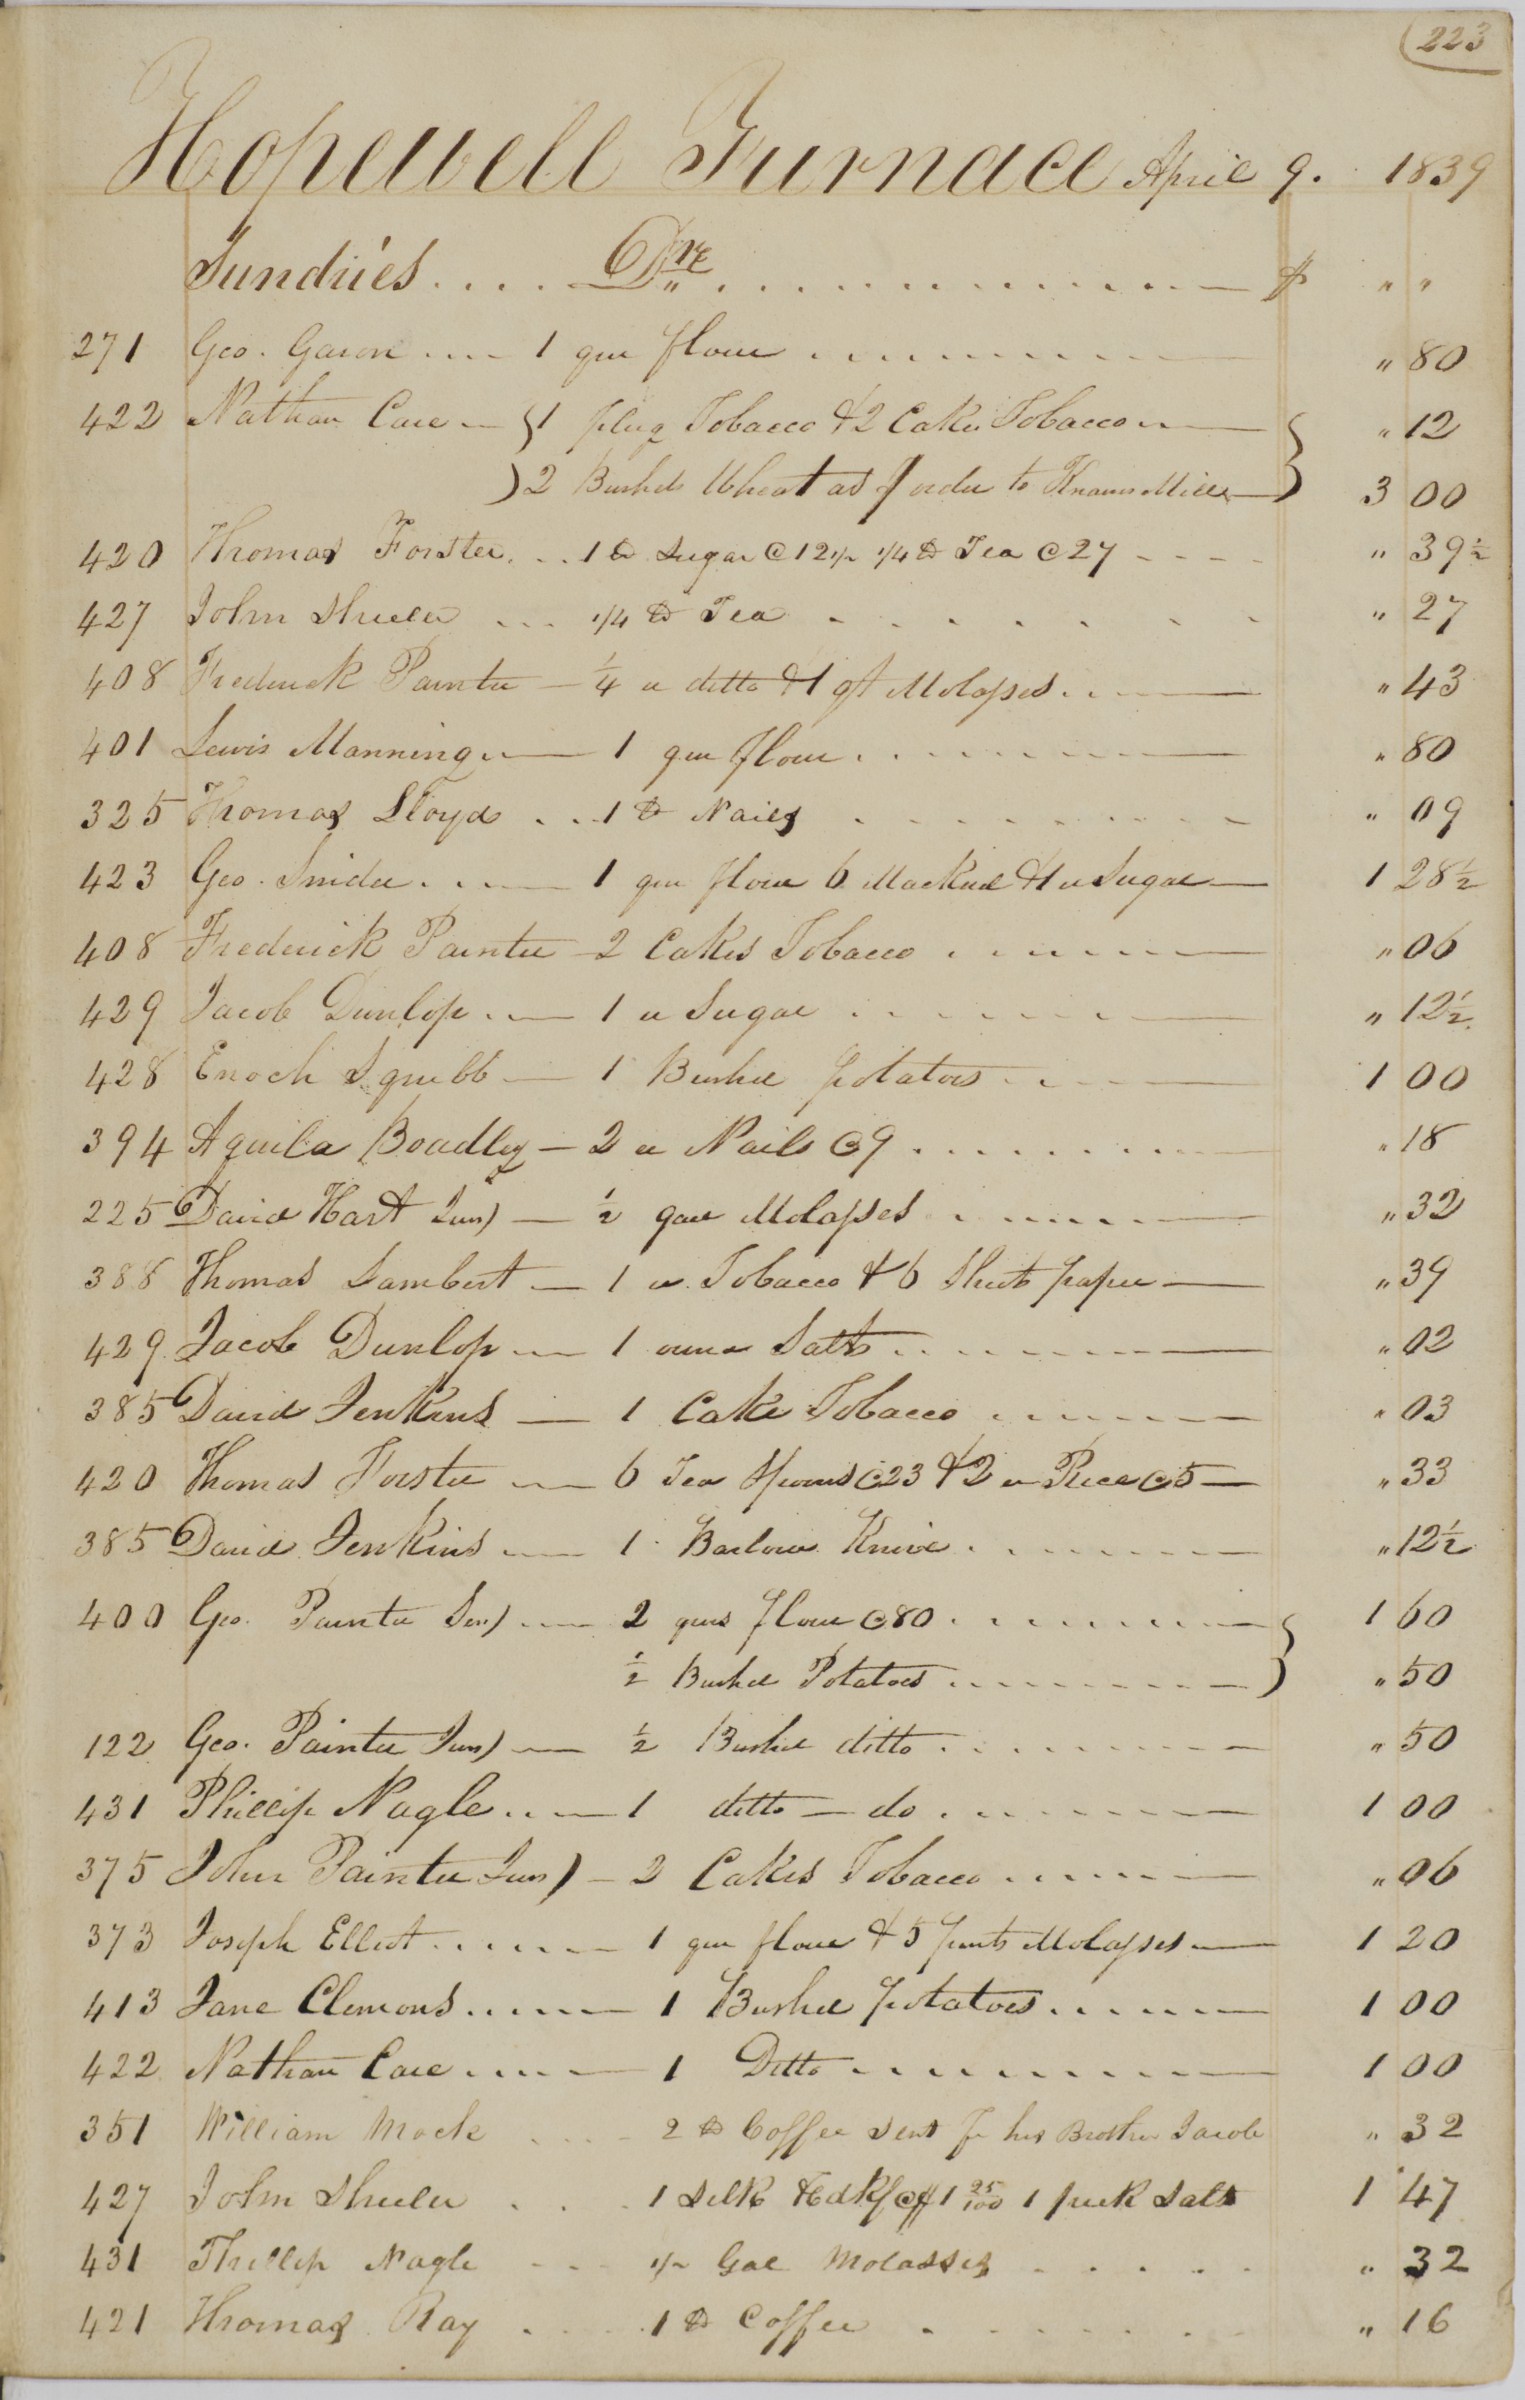 223
Hopewell Furnace April 9. 1839
Sundries .... Drs .............. $ " "
271 Geo. Garon .... 1 qur flour ......... " 80
422 Nathan Care — { 1 plug Tobacco & 2 Cakes Tobacco — } " 12
2 Bushels Wheat as pr order to Knauers Mill — 3 00
420 Thomas Forster ... 1 lb Sugar @ 12½ ¼ lb Tea @ 27 - - - - " 39½
427 John Sheeler ... ¼ lb Tea . . . . . . . " 27
408 Frederick Painter — ¼ " ditto & 1 qt Molasses ... — " 43
401 Lewis Manning — 1 qur flour ....... — " 80
325 Thomas Lloyd ... 1 lb Nails . . . . . . . . " 09
423 Geo. Snider .... — 1 qur flour 6 Mackrel & 1 " Sugar — 1 28½
408 Frederick Painter — 2 Cakes Tobacco ...... — " 06
429 Jacob Dunlop .. — 1 " Sugar ....... — " 12½
428 Enoch Squibb — 1 Bushel potatoes .... — 1 00
394 Aquila Boadley — 2 " Nails @ 9 ........ — " 18
225 David Hart Junr — ½ gall Molasses ...... — " 32
388 Thomas Lambert — 1 " Tobacco & 6 Sheets paper — " 39
429 Jacob Dunlop — 1 ounce Salts ....... — " 02
385 David Jenkins — 1 Cake Tobacco ...... — " 03
420 Thomas Forster — 6 Tea Spoons @ 23 & 2 " Rice @ 5 — " 33
385 David Jenkins ... — 1 Barlow Knive ....... — " 12½
400 Geo. Painter Senr ... — 2 qurs flour @ 80 ........ — } 1 60
½ Bushel Potatoes ........ — " 50
122 Geo. Painter Junr — ½ Bushel ditto ........ — " 50
431 Phillip Nagle ... — 1 ditto — do ....... — 1 00
375 John Painter Junr — 2 Cakes Tobacco ...... — " 06
373 Joseph Elliot ...... — 1 qur flour & 5 pints Molasses — 1 20
413 Jane Clemons ..... — 1 Bushel potatoes ..... — 1 00
422 Nathan Care .... — 1 Ditto ......... — 1 00
351 William Mock ... - 2 lb Coffee Sent pr his Brother Jacob " 32
427 John Sheeler . . . . 1 Silk Hdkf @ $1 25/100 1 peck Salt 1 47
431 Phillip Nagle - - - ½ Gal Molasses . . . . . " 32
421 Thomas Ray . . . . 1 lb Coffee . . . . . . " 16